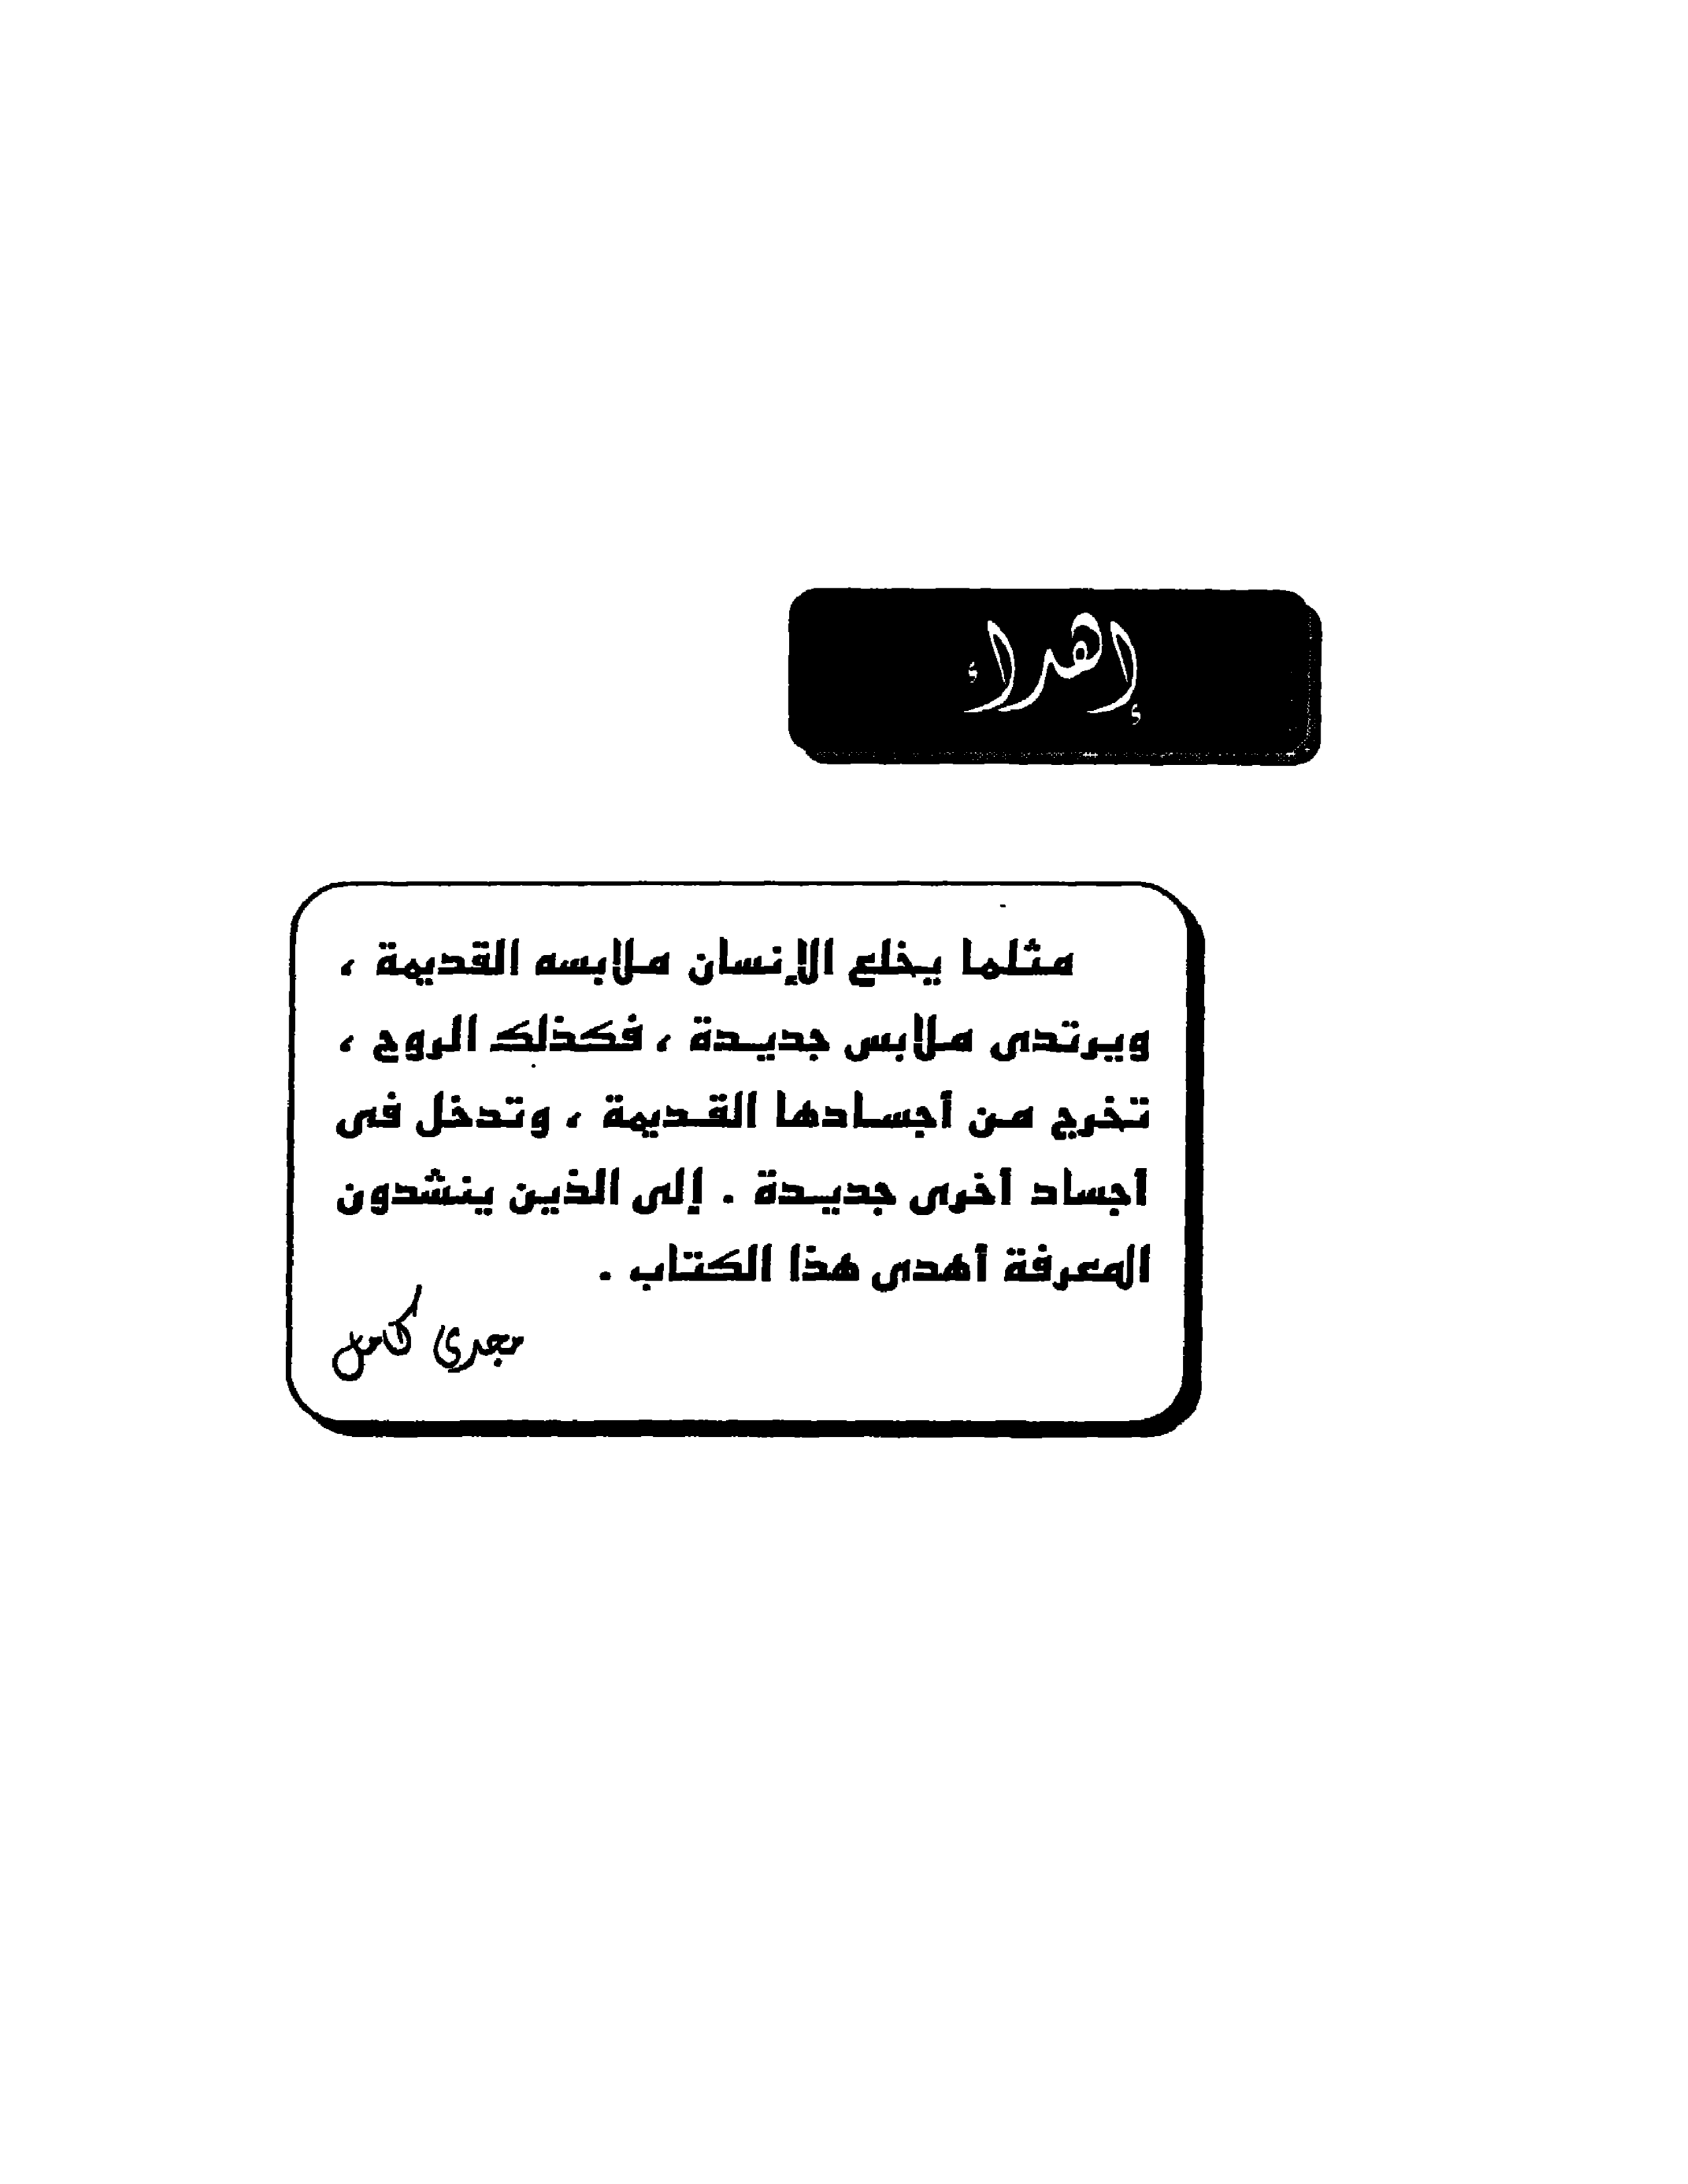 إهداء
مثلما يخلع الإنسان ملابسه القديمة ،
ويرتدى ملابس جديدة ، فكذلك الروح ،
تخرج من أجسادها القديمة ، وتدخل فى
أجساد أخرى جديدة . إلى الذين ينشدون
المعرفة أهدى هذا الكتاب .
مجدي كامل